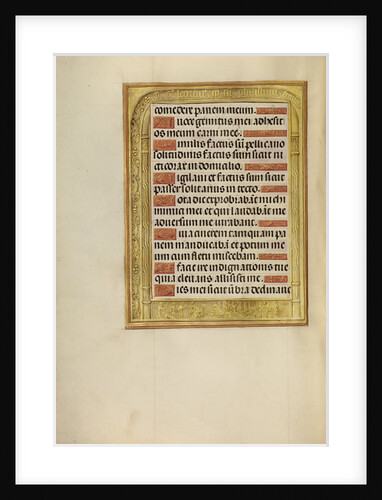 comedere panem meum.
A uoce gemitus mei adhesit
os meum carni mee.
S imilis factus sū pellicano
solitudinis factus sum sicut ni
cticorax in domicilio.
V igilaui et factus sum sicut
passer solitarius in tecto.
T ota die exprobrabāt michi
inimici mei et qui laudabāt me
aduersum me iurabant.
Q uia cinerem tamquam pa
nem manducabā et potum me
um cum fletu miscebam.
A facie ire indignationis tue
quia eleuans allisisti me.
D ies mei sicut ūbra declinaue